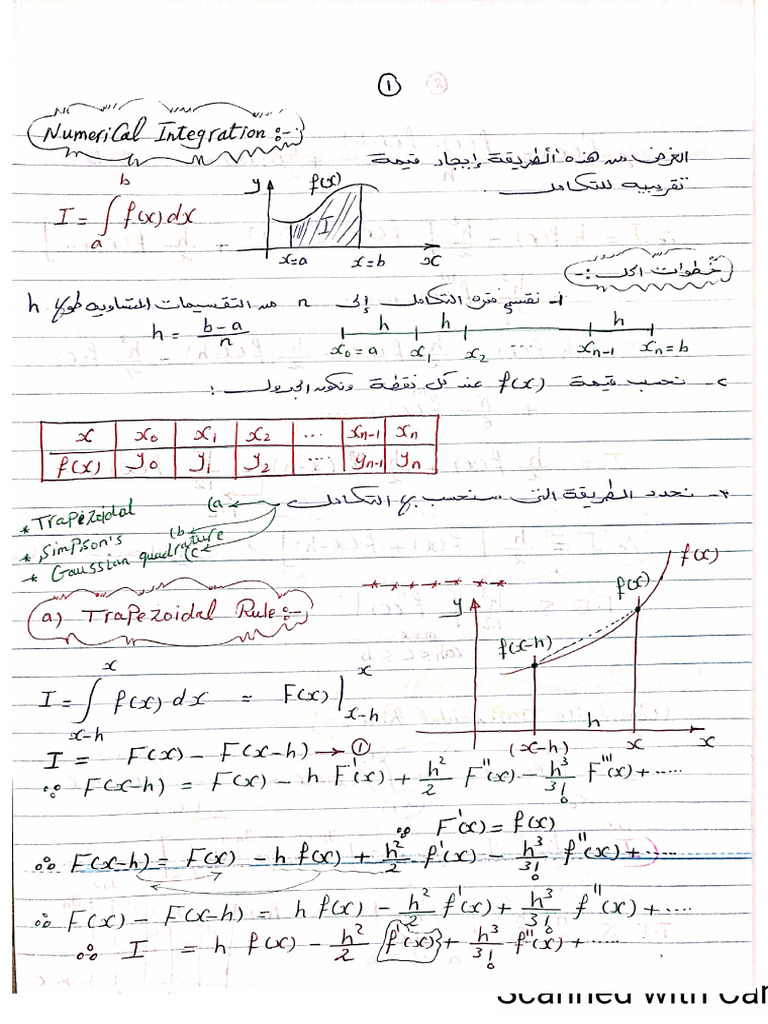 ①
Numerical Integration :-
الغرض من هذه الطريقة إيجاد قيمة
تقريبية للتكامل
I = ∫_a^b f(x) dx
y f(x) I x=a x=b x
خطوات الحل :-
١- نقسم فترة التكامل إلى n من التقسيمات المتساوية طولها h
h = (b-a)/n
h h h
x0 = a x1 x2 ... xn-1 xn = b
٢- نحسب قيمة f(x) عند كل نقطة ونكون الجدول :
x x0 x1 x2 ... xn-1 xn
f(x) y0 y1 y2 ... yn-1 yn
٣- نحدد الطريقة التى سنحسب بها التكامل
(a * Trapezoidal
(b * Simpson's
(c * Gaussian quadrature
a) Trapezoidal Rule :-
y f(x-h) f(x) f(x) h (x-h) x x
I = ∫_{x-h}^{x} f(x) dx = F(x) |_{x-h}^{x}
I = F(x) - F(x-h) → ①
∵ F(x-h) = F(x) - h F'(x) + h²/2 F''(x) - h³/3! F'''(x) + .....
∵ F'(x) = f(x)
∴ F(x-h) = F(x) - h f(x) + h²/2 f'(x) - h³/3! f''(x) + .....
∴ F(x) - F(x-h) = h f(x) - h²/2 f'(x) + h³/3! f''(x) + ....
∴ I = h f(x) - h²/2 f'(x) + h³/3! f''(x) + .....
Scanned with Car